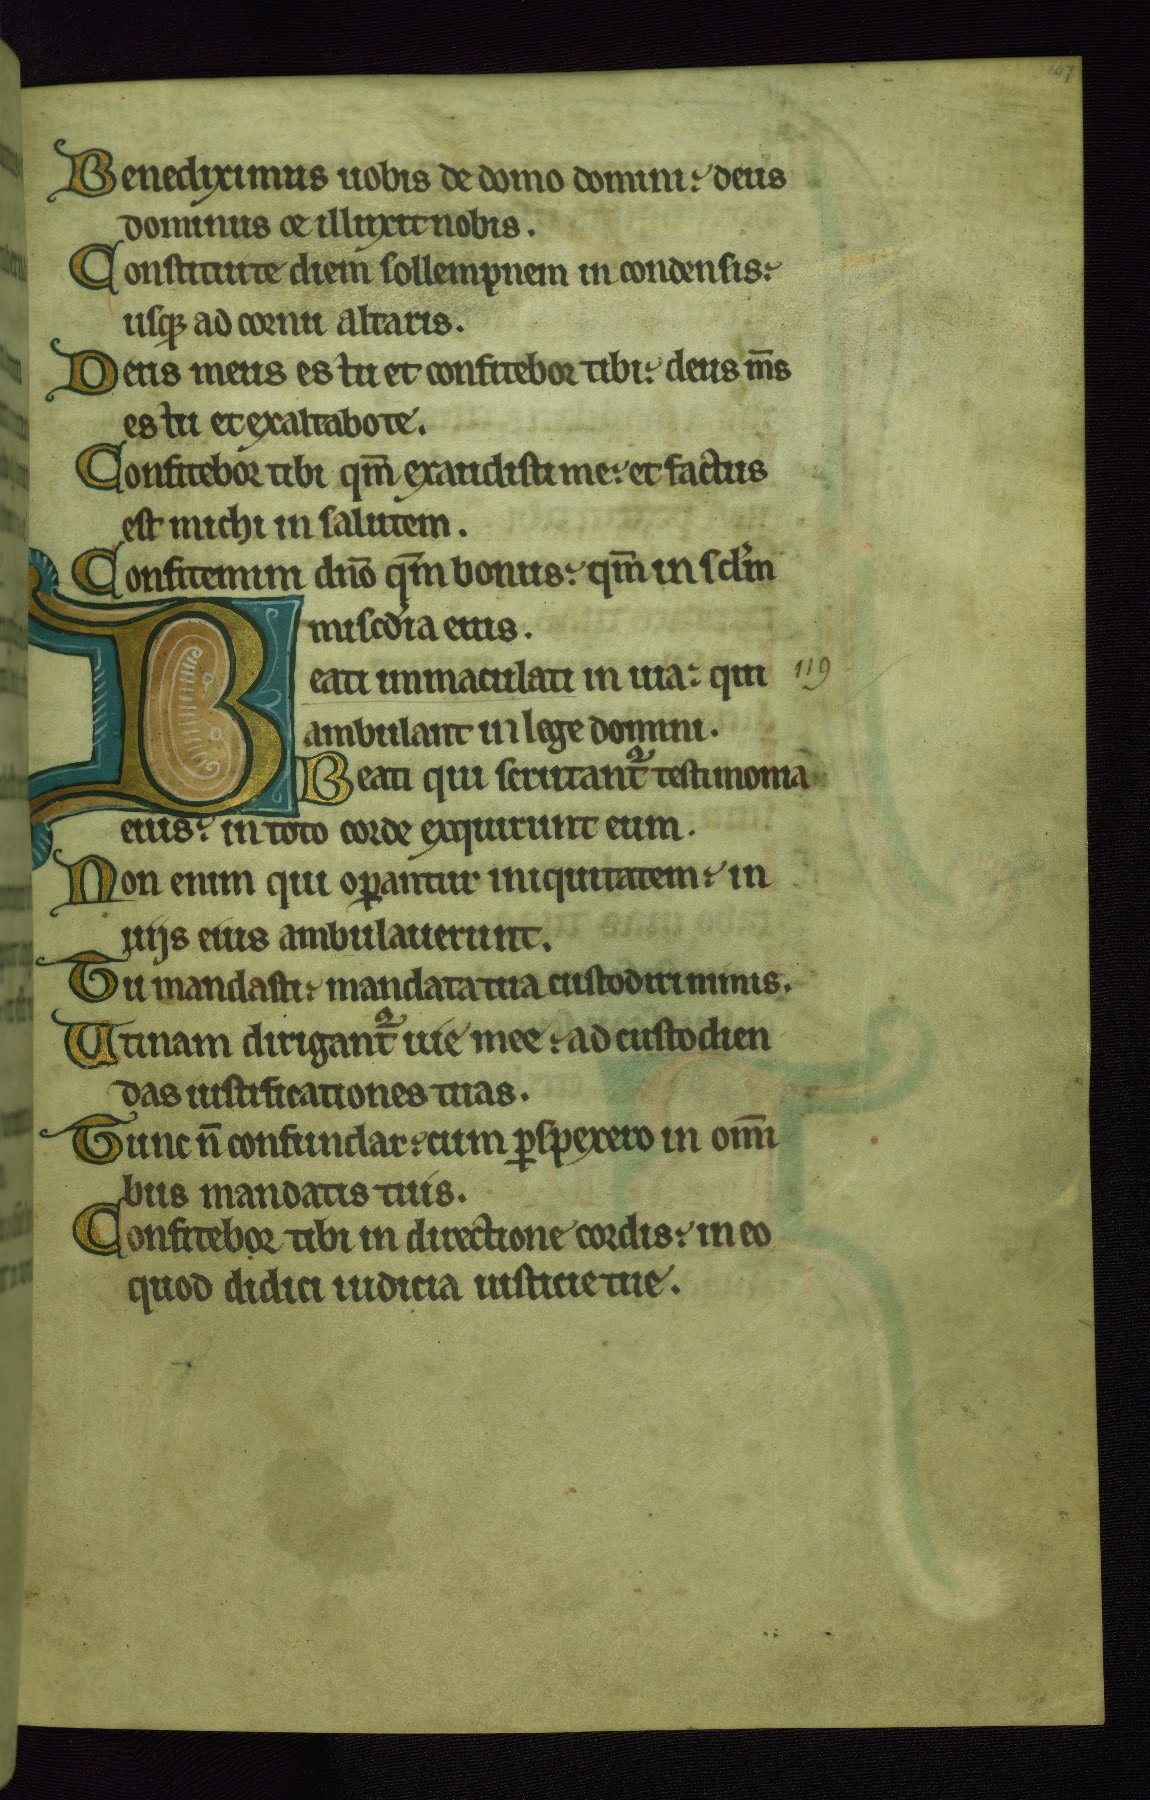 107
Benediximus uobis de domo domini: deus
dominus et illuxit nobis.
Constituite diem sollempnem in condensis:
usq; ad cornu altaris.
Deus meus es tu et confitebor tibi: deus m̅s
es tu et exaltabo te.
Confitebor tibi qm̅ exaudisti me: et factus
est michi in salutem.
Confitemini dn̅o qm̅ bonus: qm̅ in sc̅lm
misc̅dia eius.
Beati immaculati in uia: qui 119
ambulant in lege domini.
Beati qui scrutant᷑ testimonia
eius: in toto corde exquirunt eum.
Non enim qui oꝑantur iniquitatem: in
uijs eius ambulauerunt.
Tu mandasti: mandata tua custodiri nimis.
Utinam dirigant᷑ uie mee: ad custodien
das iustificationes tuas.
Tunc n̅ confundar: cum ꝑspexero in om̅i
bus mandatis tuis.
Confitebor tibi in directione cordis: in eo
quod didici iudicia iusticie tue.